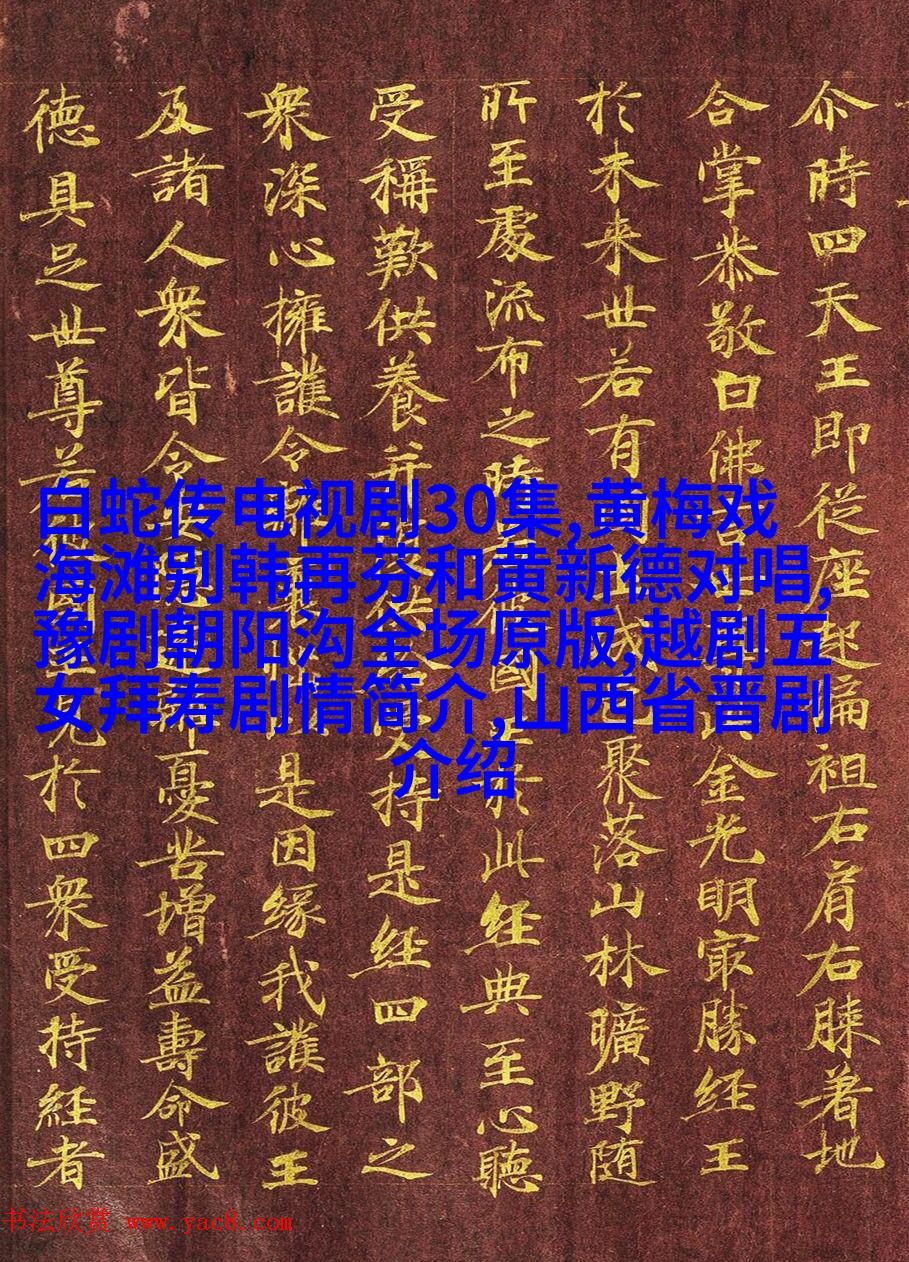 尒時四天王即從座起偏袒右肩右膝著地
合掌恭敬白佛言金光明㝡勝經王
於未来世若有聚落山林曠野随
所至處流布之時國於此經典至心聽
受稱歎供養并持是經四部之
衆深心擁護令是因緣我護彼王
及諸人衆皆令憂苦增益壽命盛
德具足世尊若國見於四衆受持經者
白蛇传电视剧30集,黄梅戏
海滩别韩再芬和黄新德对唱,
豫剧朝阳沟全场原版,越剧五
女拜寿剧情简介,山西省晋剧
介绍
书法欣赏 www.yac8.com